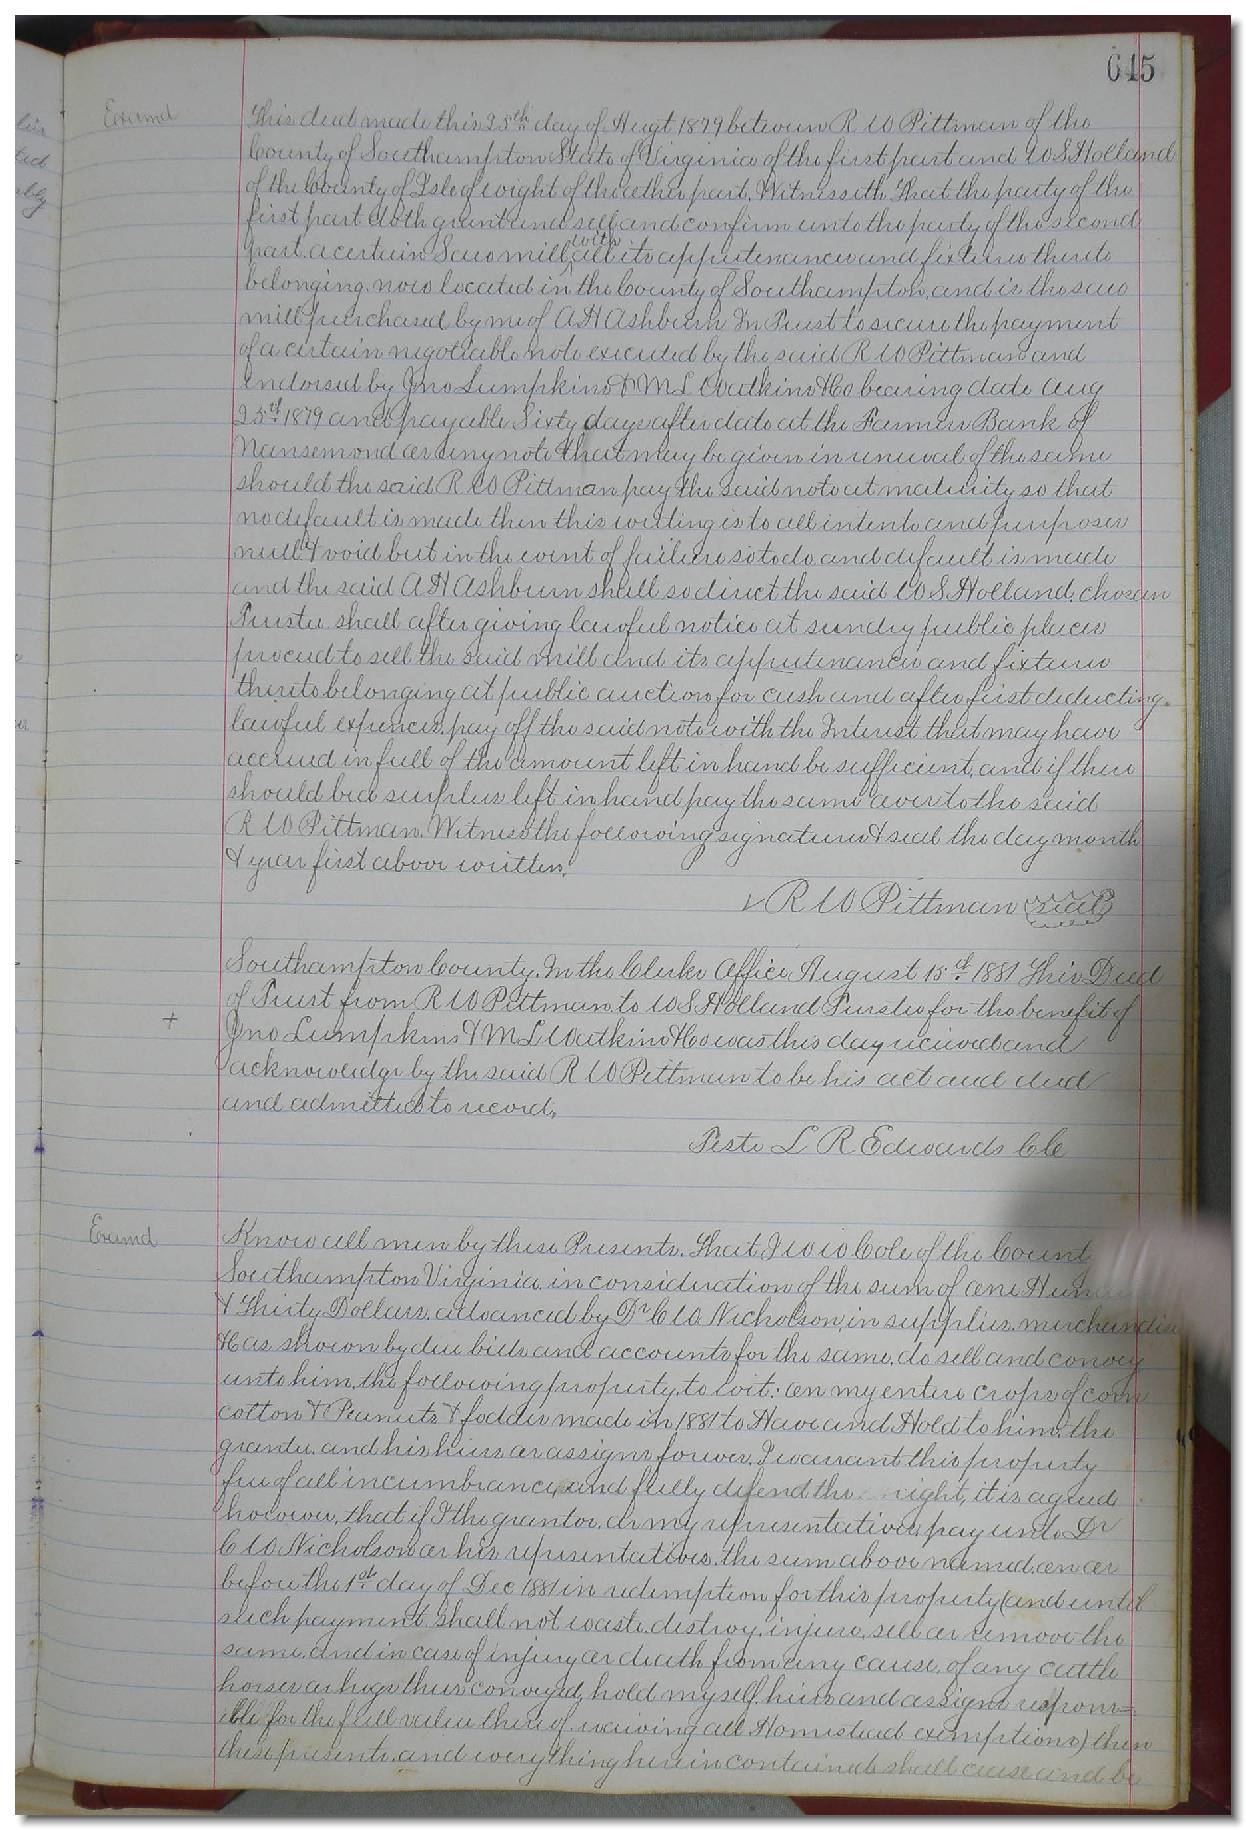 645
Examd
This deed made this 25th day of Augt 1879 between R W Pittman of the
County of Southampton State of Virginia of the first part and W S Holland
of the County of Isle of wight of the other part, Witnesseth That the party of the
first part doth grant and sell and confirm unto the party of the second
part a certain Saw mill with all its appurtenances and fixtures thereto
belonging. now located in the County of Southampton, and is the saw
mill purchased by me of A H Ashburn In Trust to secure the payment
of a certain negotiable note executed by the said R W Pittman and
endorsed by Jno Lumpkins & M L Watkins & Co bearing date Aug
25th 1879 and payable Sixty days after date at the Farmers Bank of
Nansemond or any note that may be given in renewal of the same
should the said R W Pittman pay the said note at maturity so that
no default is made then this writing is to all intents and purposes
null & void but in the event of failure so to do and default is made
and the said A H Ashburn shall so direct the said W S Holland. chosen
Trustee shall after giving lawful notice at sundry public places
proceed to sell the said mill and its appurtenances and fixtures
thereto belonging at public auction for cash and after first deducting
lawful expences. pay off the said note with the Interest that may have
accrued in full of the amount left in hand be sufficient, and if there
should be a surplus left in hand pay the same over to the said
R W Pittman. Witness the following signature & seal the day month
& year first above written.
R W Pittman seal
Southampton County. In the Clerks Office August 15th 1881 This Deed
of Trust from R W Pittman to W S Holland Trustee for the benefit of
+
Jno Lumpkins & M L Watkins & Co was this day received and
acknowledge by the said R W Pittman to be his act and deed
and admitted to record.
Teste L R Edwards Clk
Examd
Know all men by these Presents. That I W W Cole of the Count
Southampton Virginia. in consideration of the sum of one Hun
& Thirty Dollars. advanced by Dr C W. Nicholson, in supplies. merchandise
&c as shown by due bills and accounts for the same. do sell and convey
unto him, the following property, to wit: on my entire crops of corn
cotton & Peanuts & fodder made in 1881 to Have and Hold to him, the
grantee. and his heirs or assigns forever. I warrant this property
free of all incumbrance, and fully defend the right, it is agreed
however, that if I the grantor. or my representatives, pay unto Dr
C W. Nicholson or his representatives. the sum above named. on or
before the 1st day of Dec 1881 in redemption for this property (and until
such payment shall not waste. destroy. injure. sell or remove the
same. and in case of injury or death from any cause, of any cattle
horses or hogs thus conveyed, hold myself, heirs and assigns respons=
ible for the full value thereof. waiving all Homestead exemptions) then
these presents. and everything herein contained shall cease and be